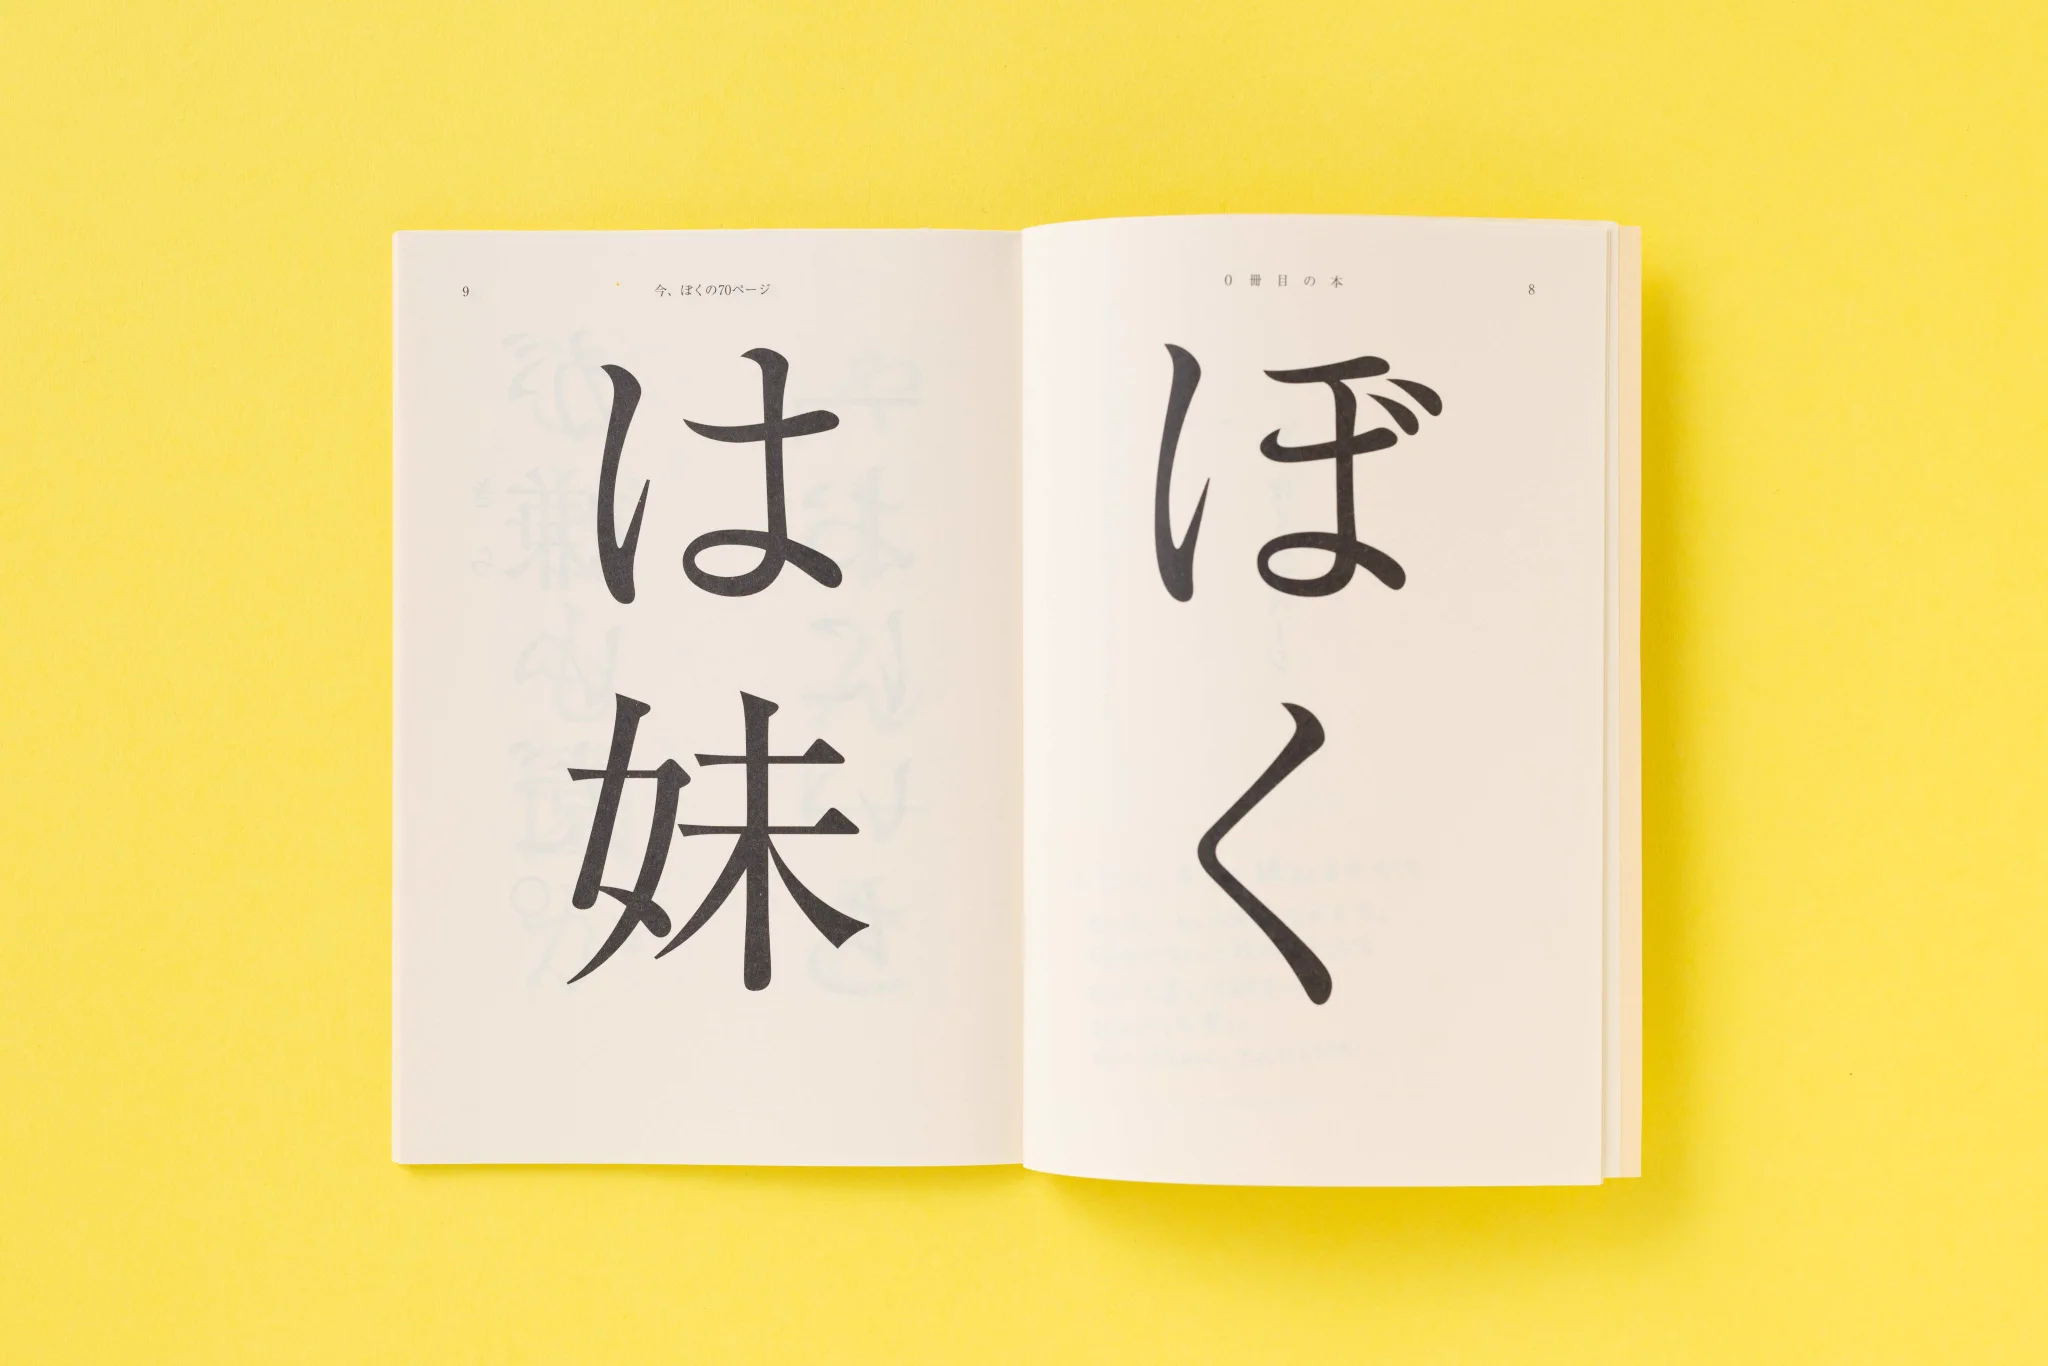 0冊目の本
8
ぼく
9
今、ぼくの70ページ
は妹